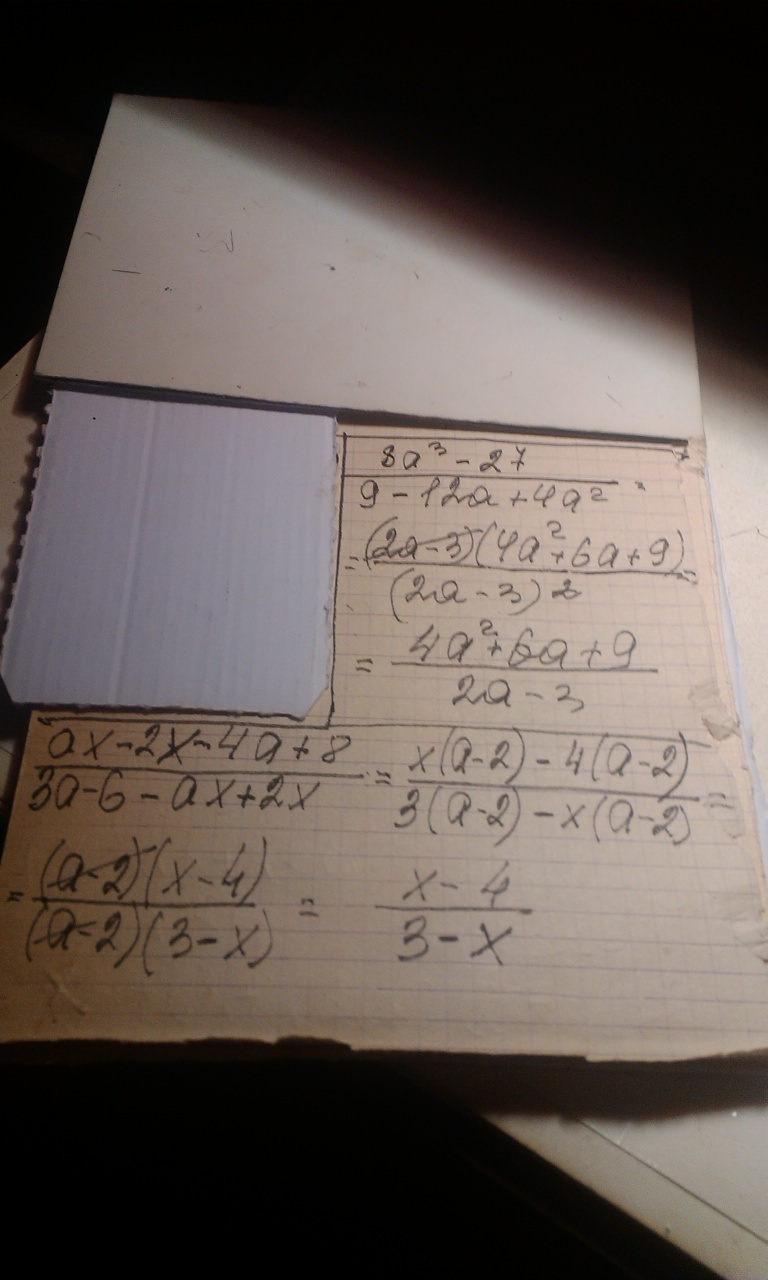 8a³ - 27
9 - 12a + 4a² =
= (2a-3)(4a²+6a+9) =
(2a-3)2
= 4a²+6a+9
2a-3
ax-2x-4a+8 = x(a-2)-4(a-2) =
3a-6-ax+2x 3(a-2)-x(a-2)
= (a-2)(x-4) = x-4
(a-2)(3-x) 3-x